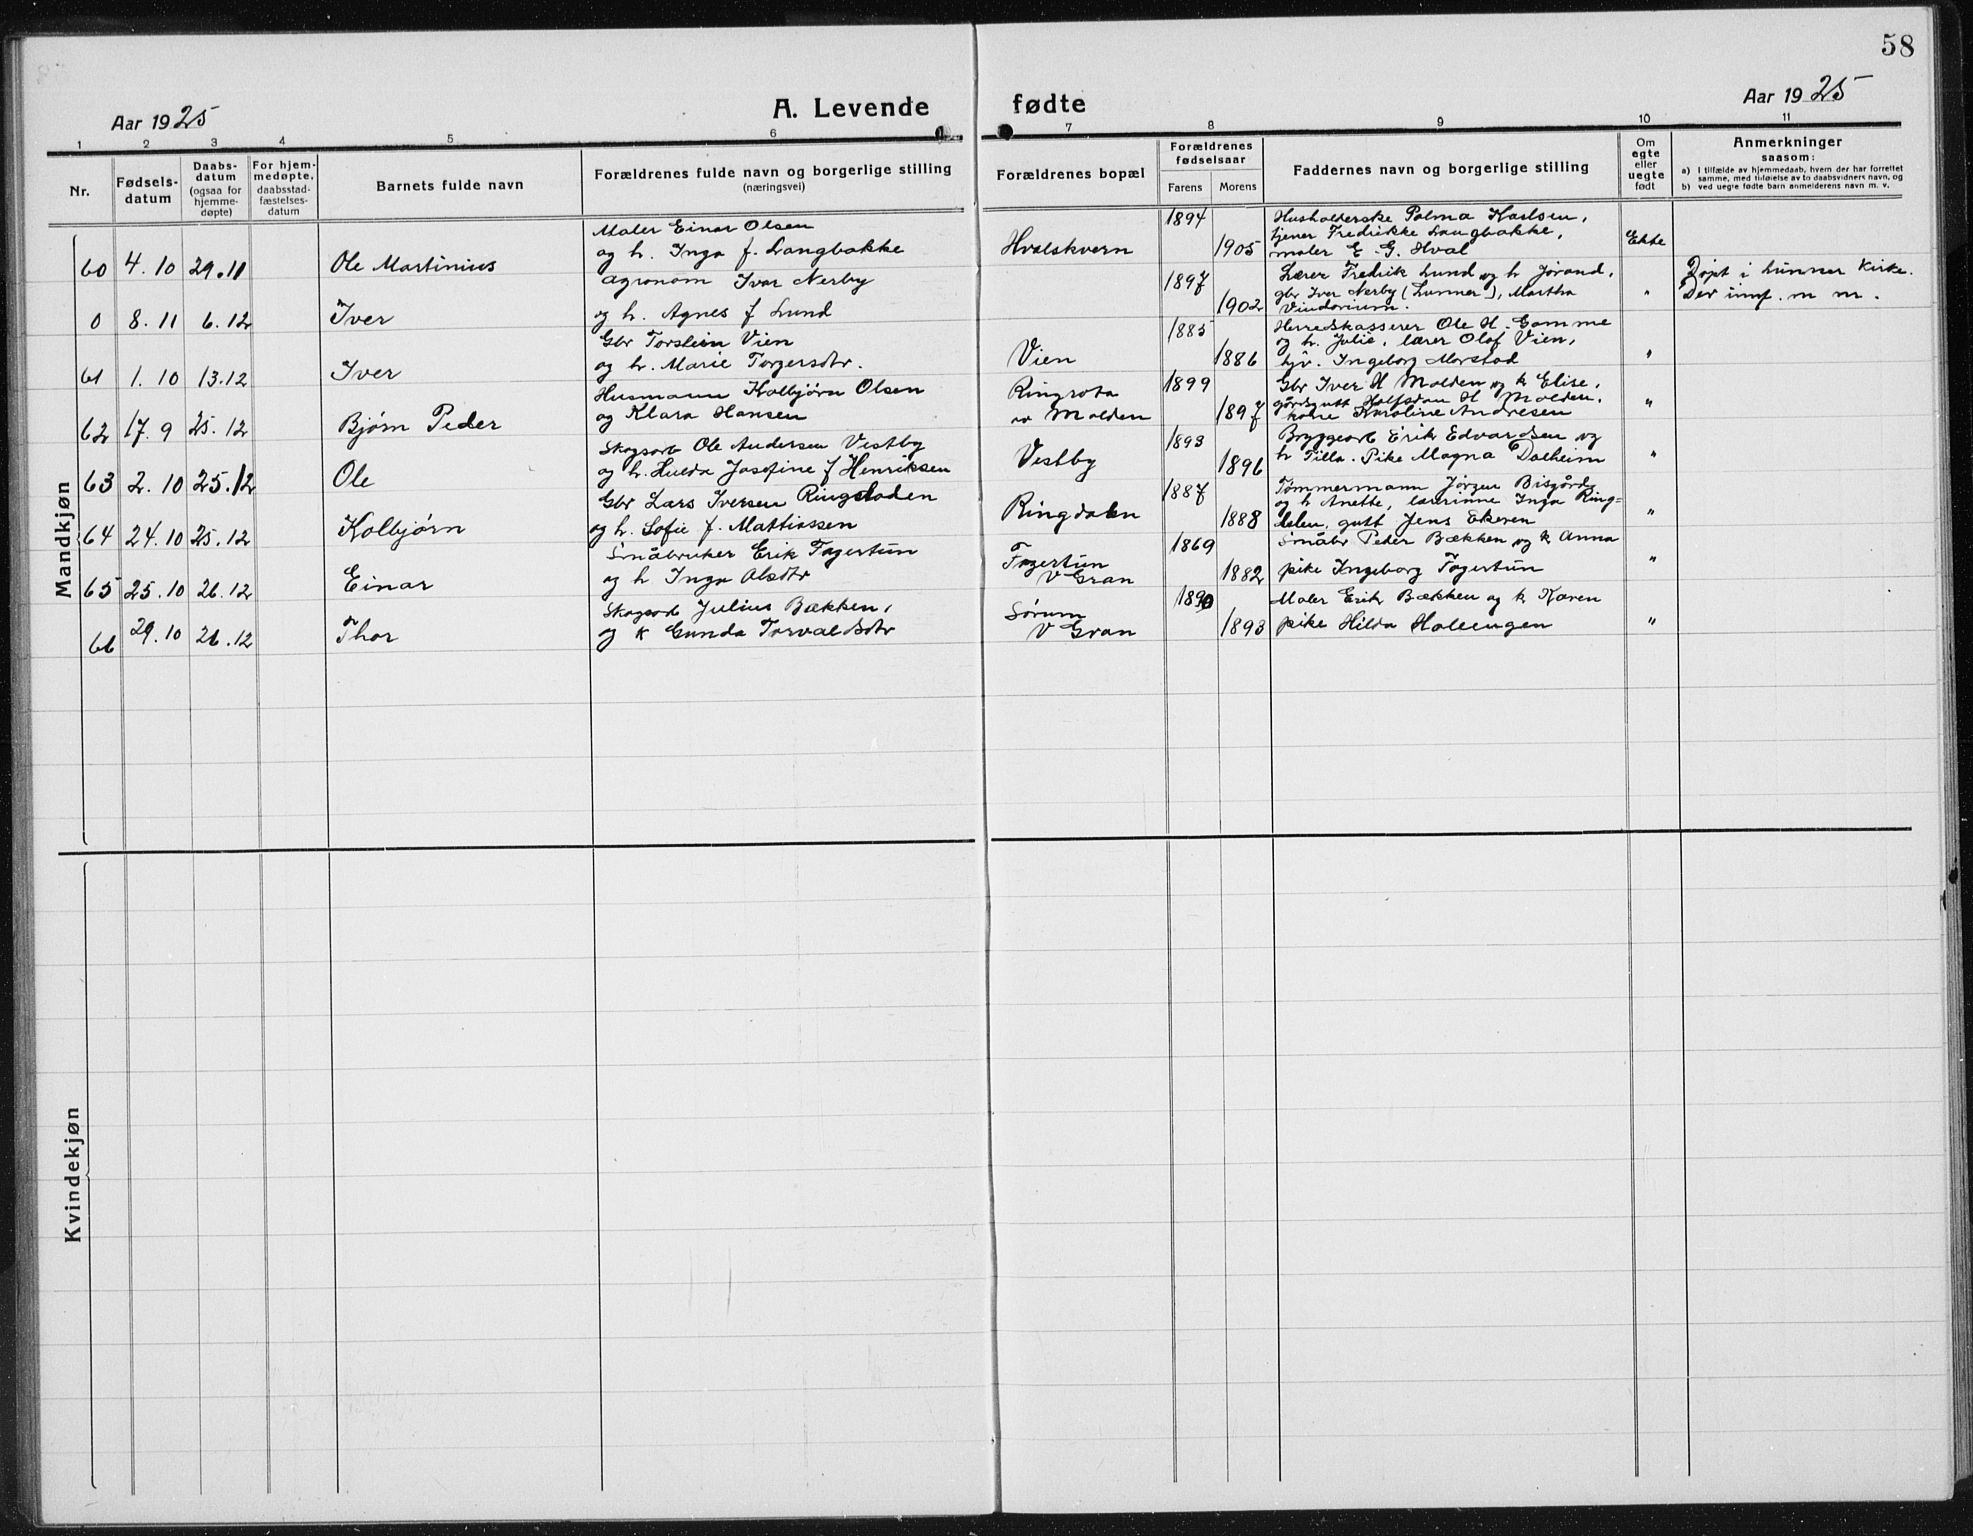 58
Aar 1925
A. Levende fødte
Aar 1925
1 2 3 4 5 6 7 8 9 10 11
Nr.
Fødsels-
datum
Daabs-
datum
(ogsaa for
hjemme-
døpte)
For hjem-
medøpte,
daabsstad-
fæstelses-
datum
Barnets fulde navn
Forældrenes fulde navn og borgerlige stilling
(næringsvei)
Forældrenes bopæl
Forældrenes
fødselsaar
Farens Morens
Faddernes navn og borgerlige stilling
Om
egte
eller
uegte
født
Anmerkninger
saasom:
a) I tilfælde av hjemmedaab, hvem der har forrettet
samme, med tilføielse av to daabsvidners navn, og
b) ved uegte fødte barn anmelderens navn m. v.
Mandkjøn
60 4.10 29.11 Ole Martinius
Maler Einar Olsen
og h. Inga f. Langbakke
Hvalskvern
1894
1905
Husholderske Palma Karlsen,
tjener Fredrikke Langbakke,
maler E. G. Hval
Ekte
0 8.11 6.12 Iver
Agronom Ivar Nerby
og h. Agnes f Lund
1897
1902
Lærer Fredrik Lund og h Jørand,
gbr Iver Nerby (Lunner), Martha
"
Døpt i Lunner Kirke.
Der innf. m m.
61 1.10 13.12 Iver
Gbr Torstein Vien
og h. Marie Torgersdtr.
Vien
1885
1886
Herredskasserer Ole H. Gamme
og h. Julie, lærer Olaf Vien,
hjv. Ingeborg Morstad
"
62 17.9 25.12 Bjørn Peder
Husmann Kolbjørn Olsen
og Klara Hansen
Ringrota
av Molden
1899
1897
Gbr Iver H Molden og k Elise,
gårdsgutt Halfsdan H Molden,
kone Karoline Andresen
"
63 2.10 25.12 Ole
Skogsarb Ole Andersen Vestby
og h. Hulda Josefine f Henriksen
Vestby
1893
1896
Bryggearb Erik Edvardsen og
h Tilla. Pike Magna Dalheim
"
64 24.10 25.12 Kolbjørn
Gbr Lars Iversen
og h. Sofie f. Mattiassen
Ringdalen
1887
1888
Tømmermann Jørgen Bisgård
og h Anette, lærerinne Inga Ring=
dalen, gutt Jens Ekeren
"
65 25.10 26.12 Einar
Småbruker Erik Fagertun
og h Inga Olsdtr
Fagertun
V Gran
1869
1882
Småbr Peder Bækken og k Anna
pike Ingeborg Fagertun
"
66 29.10 26.12 Thor
Skogsarb Julius Bækken,
og k Gunda Torvaldsdtr
Sørum
V Gran
1890
1893
Maler Erik Bækken og k Karen
pike Hilda
"
Kvindekjøn